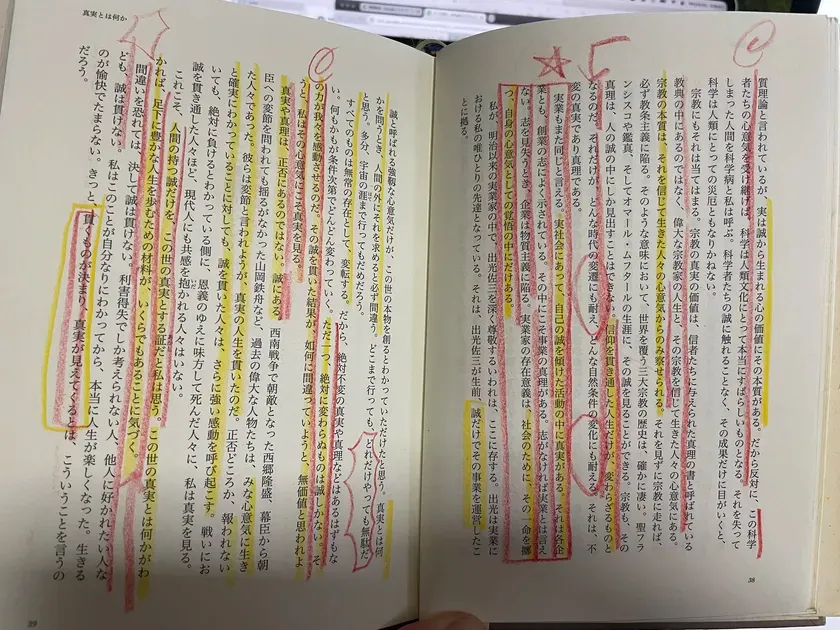 質理論と言われているが、実は誠から生まれる心の価値にその本質がある。だから反対に、この科学
者たちの心意気を受け継げば、科学は人類文化にとって本当にすばらしいものとなる。それを失って
しまった人間を科学病と私は呼ぶ。科学者たちの誠に触れることなく、その成果だけに目がいくと、
科学は人類にとっての災厄ともなりかねない。
宗教にもそれは当てはまる。宗教の真実の価値は、信者たちに与えられた真理の書と呼ばれている
教典の中にあるのではなく、偉大な宗教家の人生と、その宗教を信じて生きた人々の心意気にある。
宗教の本質は、それを信じて生きてきた人々の心意気からのみ察せられる。それを見ずに宗教に走れば、
必ず教条主義に陥る。そのような意味において、世界を覆う三大宗教の歴史は、確かに凄い。聖フラ
ンシスコや鑑真、そしてオマール・ムフタールの生涯に、その誠を見ることができる。宗教も、その
真理は、人の誠の中にしか見出すことはできない。信仰を貫き通した人生だけが、変わらざるものと
なるのだ。それだけが、どんな時代の変遷にも耐え、どんな自然条件の変化にも耐える。それは、不
変の真実であり真理である。
実業もまた同じと言える。実社会にあって、自己の誠を傾けた活動の中に真実がある。それは各企
業とも、創業の志によく示されている。その中にこそ事業の真理がある。志がなければ実業とは言え
ない。志を見失うとき、企業は物質主義に陥る。実業家の存在意義は、社会のために、その一命を擲
つ、自身の心意気としての覚悟の中にだけある。
私が、明治以来の実業家の中で、出光佐三を深く尊敬するいわれは、ここに存する。出光は実業に
おける私の唯ひとりの先達となっている。それは、出光佐三が生前、誠だけでその事業を運営したこ
とに拠る。
38
真実とは何か
誠と呼ばれる強靭な心意気だけが、この世の本物を創るとわかっていただけたと思う。真実とは何
かを問うとき、人間の外にそれを求めると必ず間違う。どこまで行っても、どれだけやっても無駄だ
と思う。多分、宇宙の涯まで行ってもだめだろう。
すべてのものは無常の存在として、変転する。だから、絶対不変の真実や真理などはあるはずもな
い。何もかもが条件次第でどんどん変わっていく。ただ一つ、絶対に変わらぬものは誠しかない。そ
の力が我々を感動させるのだ。その誠を貫いた結果が、如何に間違っていようと、無価値と思われよ
うと、私はその心意気にこそ真実を見る。
真実や真理は、正否にあるのではない。誠にある。西南戦争で朝敵となった西郷隆盛、幕臣から朝
臣への変節を問われても揺るがなかった山岡鉄舟など、過去の偉大な人物たちは、みな心意気に生き
た人々であった。彼らは変節と言われようが、真実の人生を貫いたのだ。正否どころか、報われない
と確実にわかっていることに対しても、誠を貫いた人々は、さらに強い感動を呼び起こす。戦いにお
いても、絶対に負けるとわかっている側に、恩義のゆえに味方して死んだ人々に、私は真実を見る。
誠を貫き通した人々ほど、現代人にも共感を抱かれる人々はいない。
これこそ、人間の持つ誠だけを、この世の真実とする証だと私は思う。この世の真実とは何かがわ
かれば、足下に豊かな人生を歩むための材料が、いくらでもあることに気づく。
間違いを恐れては、決して誠は貫けない。利害得失でしか考えられない人、他人に好かれたい人な
ども、誠は貫けない。私はこのことが自分なりにわかってから、本当に人生が楽しくなった。生きる
のが愉快でたまらない。きっと、貫くものが決まり、真実が見えてくるとは、こういうことを言うの
だろう。
39